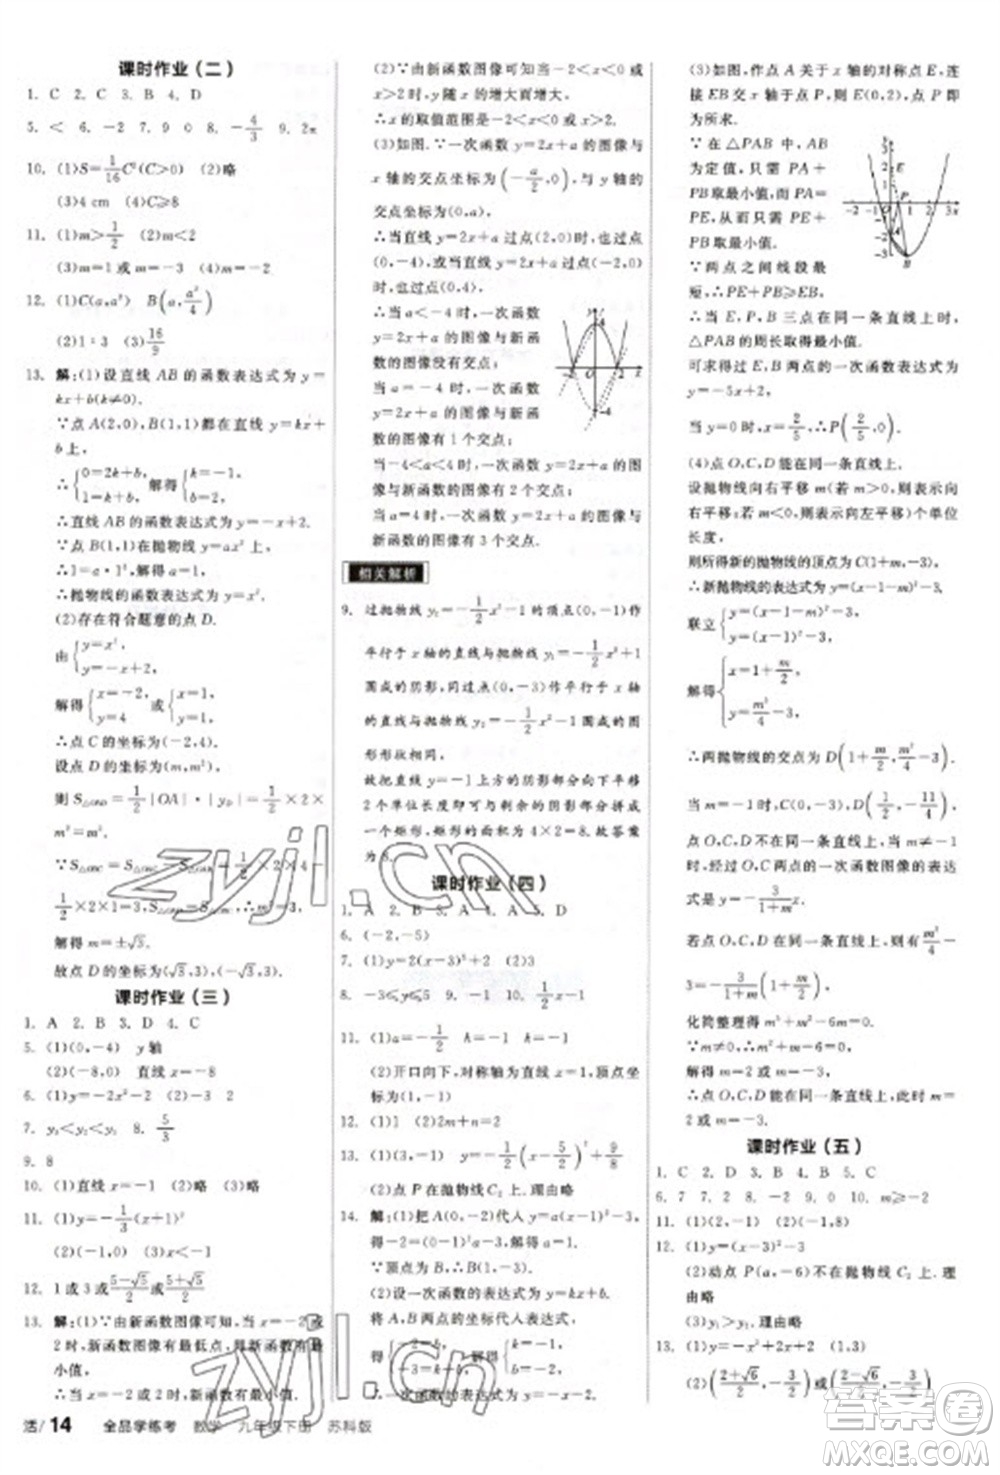 课时作业（二）
1. C 2. C 3. B 4. D
5. < 6. -2 7. 9 0 8. -4/3 9. 2π
10. (1)S=1/16 C²(C>0) (2)略
(3)4 cm (4)C≥8
11. (1)m>1/2 (2)m<1/2
(3)m=1或m=-3 (4)m>0
12. (1)C(a,a²) B(a,a²/4)
(2)1:3 (3)16/9
13. 解:(1)设直线 AB 的函数表达式为 y=
kx+b(k≠0).
∵点 A(2,0),B(1,1)都在 y=kx+
b 上,
∴{0=2k+b, 1=k+b, 解得{k=-1, b=2.
∴直线 AB 的函数表达式为 y=-x+2.
∵点 B(1,1)在抛物线 y=ax² 上,
∴1=a·1²,解得 a=1,
∴抛物线的函数表达式为 y=x².
(2)存在符合题意的点 D.
由{y=x², y=-x+2,
解得{x=-2, y=4 或{x=1, y=1.
∴点 C 的坐标为(-2,4).
设点 D 的坐标为(m,m²),
则 S△OAD=1/2|OA|·|yD|=1/2×2×
m²=m².
∵S△OBC=S△OAC-S△OAB=1/2×2×4-
1/2×2×1=3,S△OAD=S△OBC,∴m²=3,
解得 m=±√3,
故点 D 的坐标为(√3,3)或(-√3,3).
课时作业（三）
1. A 2. B 3. D 4. C
5. (1)(0,-4) y 轴
(2)(-8,0) 直线 x=-8
6. (1)y=-2x²-2 (2)-3 2
7. y₃<y₂<y₁ 8. 5/3
9. 8
10. (1)直线 x=-1 (2)略 (3)略
11. (1)y=-1/3(x+1)²
(2)(-1,0) (3)x>-1
12. 1或3或(5-√5)/2或(5+√5)/2
13. 解:(1)∵由新函数图像可知,当 x=-2或
2时,新函数图像有最低点,∴函数有最
小值.
∴当 x=-2或2时,函数 y 有最小值.
(2)∵由新函数图像可知当-2<x<0或
x>2时,y 随 x 的增大而增大.
∴x 的取值范围是-2<x<0或 x>2.
(3)如图,∵一次函数 y=2x+a 与 x
轴的交点坐标为(-a/2,0),与 y 轴的
交点坐标为(0,a),
∴当直线 y=2x+a 过点(2,0)时,也过
点(0,-4),
∴当 a<-4 时,一次函数
y=2x+a 的图像与新函
数的图像没有交点;
当 a=-4 时,一次函数
y=2x+a 的图像与新函
数的图像有1个交点;
当-4<a<4 时,一次函
数 y=2x+a 的图像与
新函数的图像有2个交点;
当 a=4 时,一次函数 y=2x+a 的图像
与新函数的图像有3个交点.
相关解析
9. 过抛物线 y₂=-1/2x²-1 的顶点(0,-1)作
平行于 x 轴的直线与抛物线 y₁=-1/2x²+1
围成的阴影,同过点(0,-3)作平行于 x 轴
的直线与抛物线 y₂=-1/2x²-1 围成的图
形形状相同,
故把直线 y=-1 上方的阴影部分向下平移
2个单位长度即可与剩余的阴影部分拼成
一个矩形,矩形的面积为 4×2=8.故答案
为8.
课时作业（四）
1. A 2. B 3. A 4. A 5. D
6. (-2,-5)
7. (1)y=2(x-3)²+5 (2)3
8. -3≤y≤5 9. -1 10. 1/2x-1
11. (1)a=-1/2 h=-1 k=-1
(2)开口向下,对称轴为直线 x=1,顶点坐
标为(1,-5)
12. (1)1 (2)2m+n=2
13. (1)(3,-1) y=-1/2(x-5/2)²+9/8
(2)点 P 在抛物线 C₂ 上.理由略
14. 解:(1)把 A(0,-2)代入 y=a(x-1)²-3,
得-2=a-3,解得 a=1.
∵顶点为 B,∴B(1,-3).
(2)设一次函数表达式为 y=kx+b,
将 A,B 两点的坐标代入表达式,
得{b=-2, k+b=-3, 解得{k=-1, b=-2.
(3)如图,作点 A 关于 x 轴的对称点 E,
连接 EB 交 x 轴于点 P,E(0,2),点 P 即
为所求.
∵在△PAB 中,AB
为定值,只需 PA+
PB 取最小值,即
PE+PB 取最小值
即可.
∵两点之间线段最
短,∴PE+PB≥BE,
∴当 E,P,B 三点在同一条直线上时,
△PAB 的周长取得最小值.
可求得经过 E,B 两点的一次函数表达
式为 y=-5x+2,
当 y=0 时,x=2/5,∴P(2/5,0).
(4)点 O,C,D 能在同一条直线上.
设抛物线向右平移 m(若 m>0)个单位
或向左平移|m|(若 m<0)个单位
长度,
则所得新的抛物线的顶点为 C(1+m,-3),
∴新抛物线的表达式为 y=(x-1-m)²-3,
联立{y=(x-1-m)²-3, y=(x-1)²-3,
解得{x=1+m/2, y=m²/4-3,
∴两抛物线的交点为 D(1+m/2,m²/4-3).
当 m=-1 时,C(0,-3),D(1/2,-11/4),
点 O,C,D 不在同一条直线上,∴m≠-1.
当 m≠-1
时,经过 O,C 两点的一次函数图像的表达
式是 y=-3/(1+m) x,
若点 O,C,D 在同一条直线上,则有m²/4
-3=-3/(1+m)(1+m/2),
化简整理得 m³+m²-6m=0.
∵m≠0,∴m²+m-6=0,
解得 m=2 或 m=-3,
∴点 O,C,D 能在同一条直线上,此时 m=
2或 m=-3.
课时作业（五）
1. C 2. D 3. A 4. B 5. C
6. 7 7. 2 8. -2 9. 0 10. m≥-2
11. (1)(2,-1) (2)(-1,8)
12. (1)y=(x-3)²-5
(2)动点 P(a,-6)不在抛物线 C₂ 上.理
由略
(3)y₁>y₂ 理由略
13. (1)y=-x²+2x+2 (1,3)
(2)((2+√6)/2,3/2)或((2-√6)/2,3/2)
活/14 全品学练考 数学 九年级下册 苏科版
zyjl.cn
zyjl.cn
答案圈
MXQE.COM